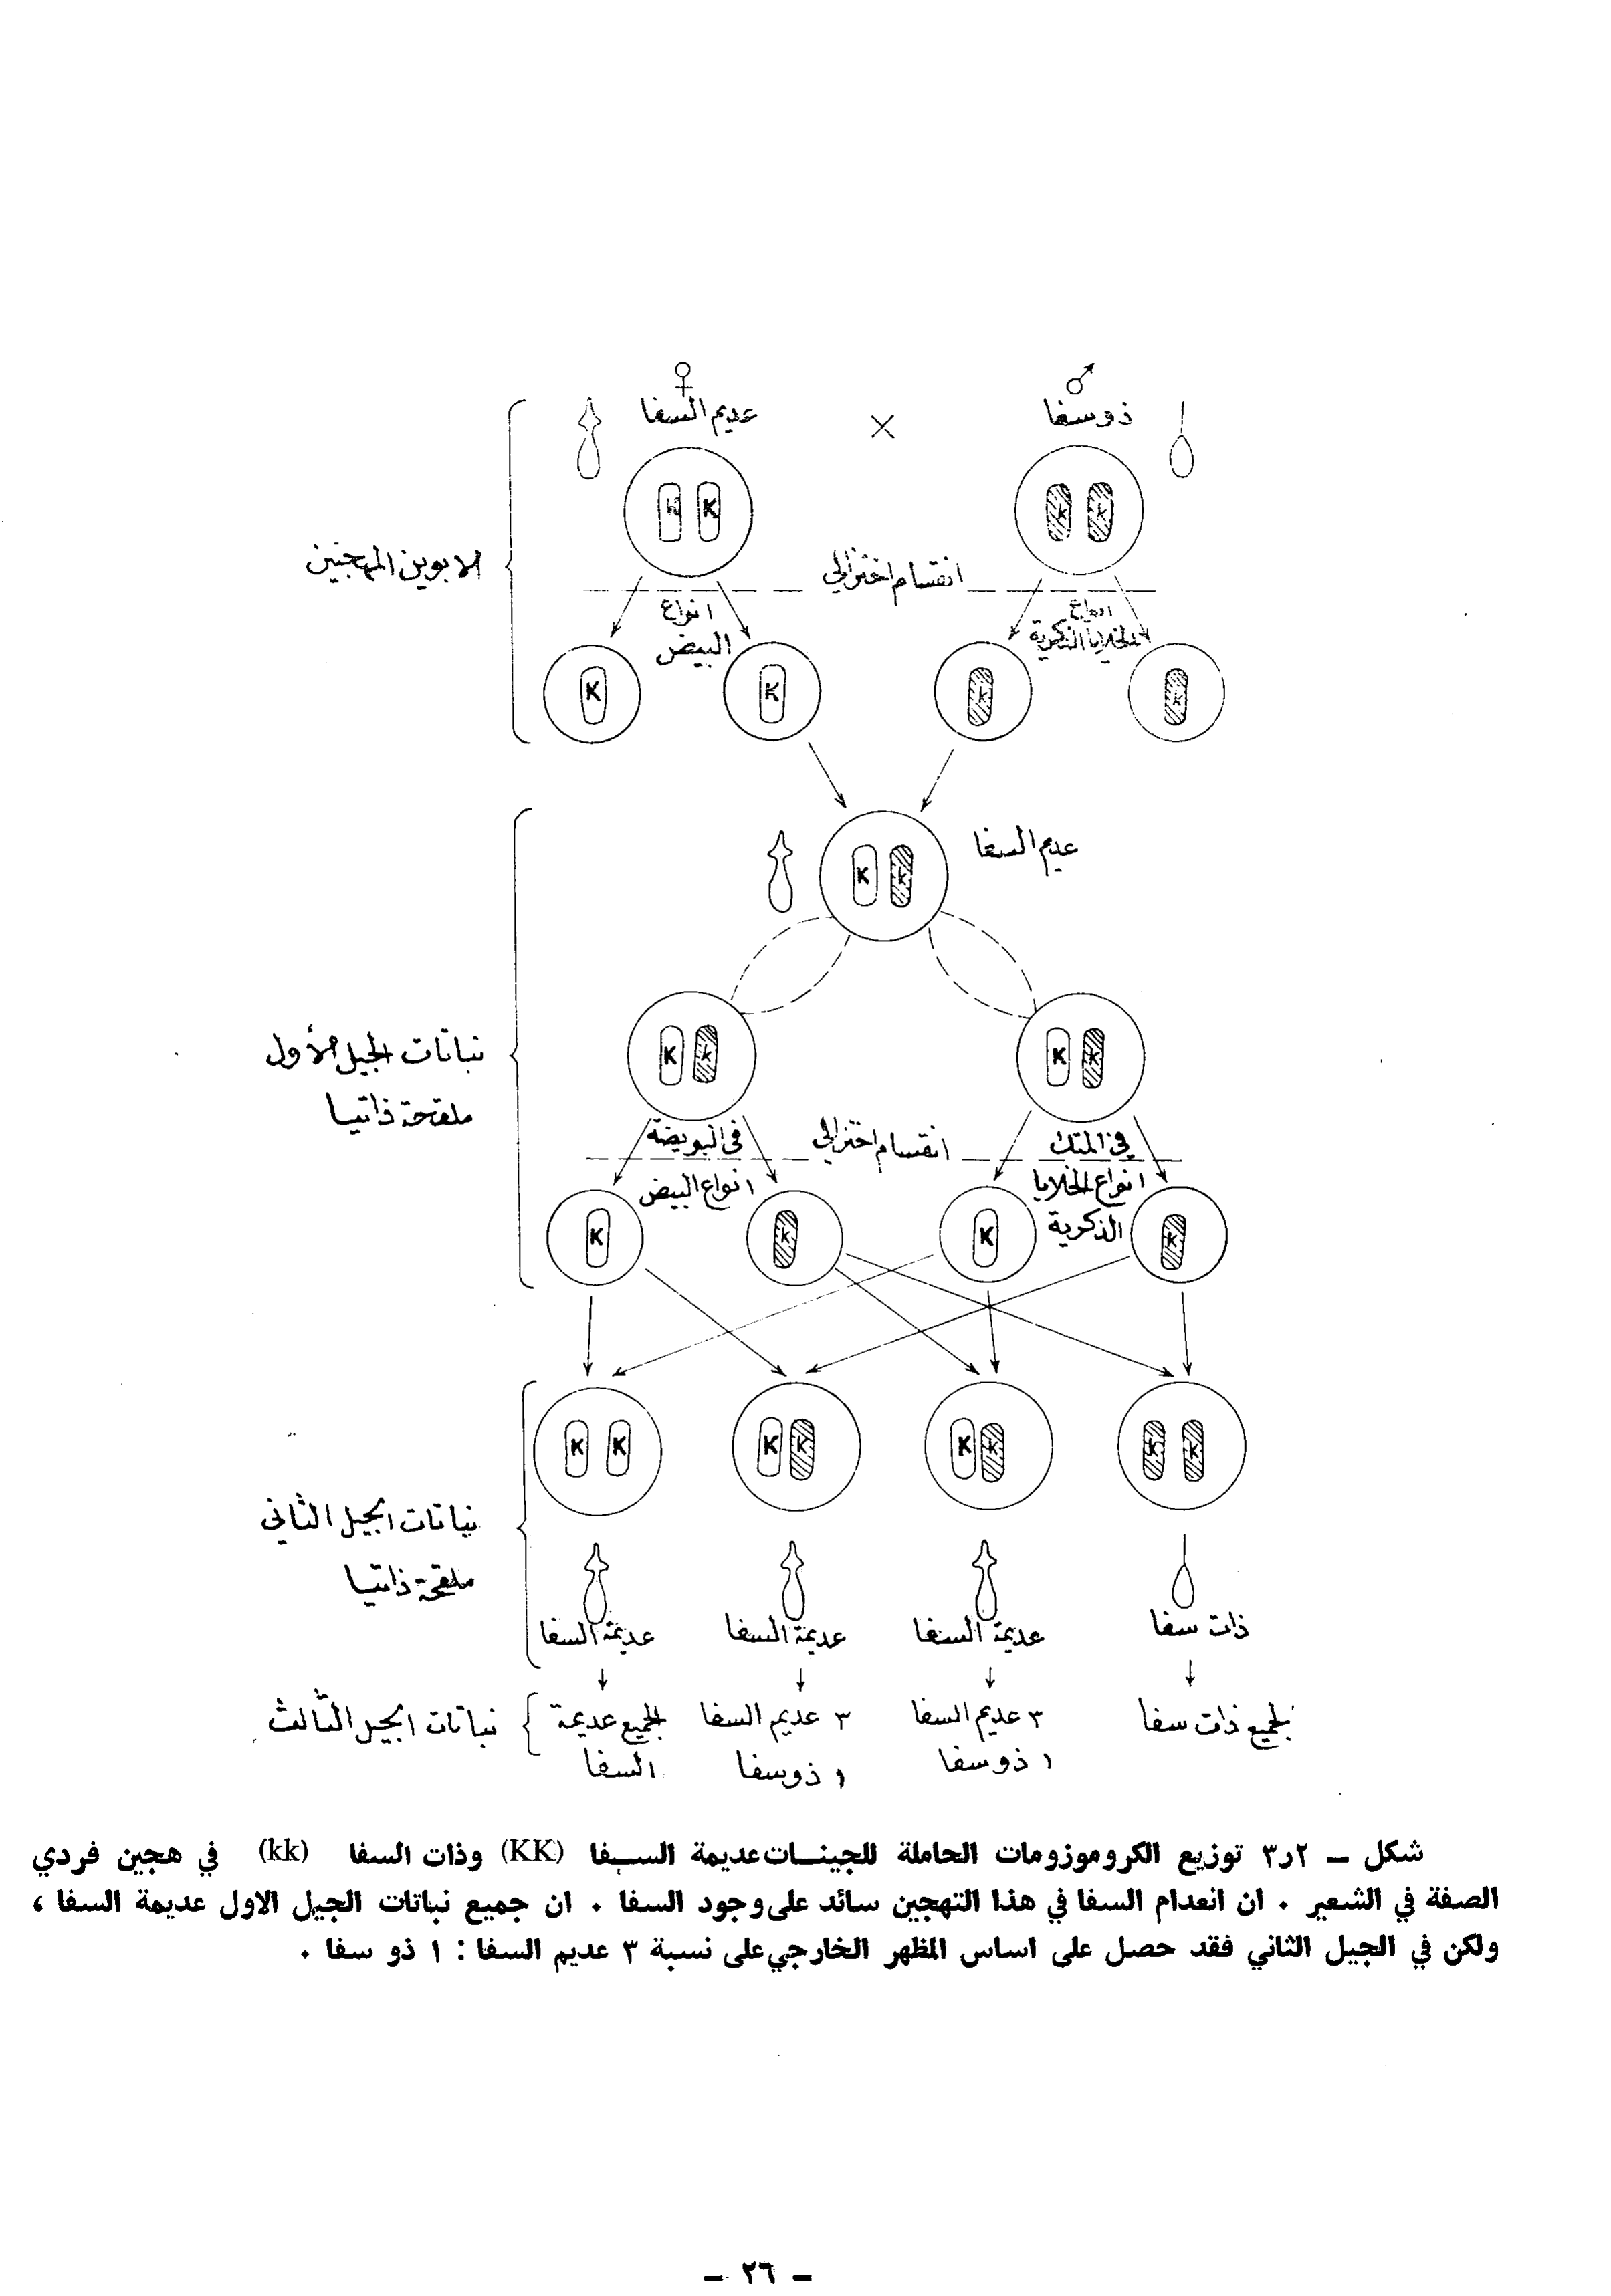 ♂ ♀
ذو سفا × عديم السفا
k k K K
الابوين المهجنين
انقسام اختزالي
انواع
الخلايا الذكرية
انواع
البيض
k k K K
عديم السفا
K k
K k K k
نباتات الجيل الأول
ملقحة ذاتيا
في المتك
انقسام اختزالي
في البويضة
انواع الخلايا
الذكرية
انواع البيض
K k K k
K K K k K k k k
نباتات الجيل الثاني
ملقحة ذاتيا
ذات سفا
عديمة السفا
عديمة السفا
عديمة السفا
نباتات الجيل الثالث
الجميع ذات سفا
٣ عديم السفا
١ ذو سفا
٣ عديم السفا
١ ذو سفا
الجميع عديمة
السفا
شكل – ٢ر٣ توزيع الكروموزومات الحاملة للجينات عديمة السفا (KK) وذات السفا (kk) في هجين فردي
الصفة في الشعير . ان انعدام السفا في هذا التهجين سائد على وجود السفا . ان جميع نباتات الجيل الاول عديمة السفا ،
ولكن في الجيل الثاني فقد حصل على اساس المظهر الخارجي على نسبة ٣ عديم السفا : ١ ذو سفا .
– ٢٦ –